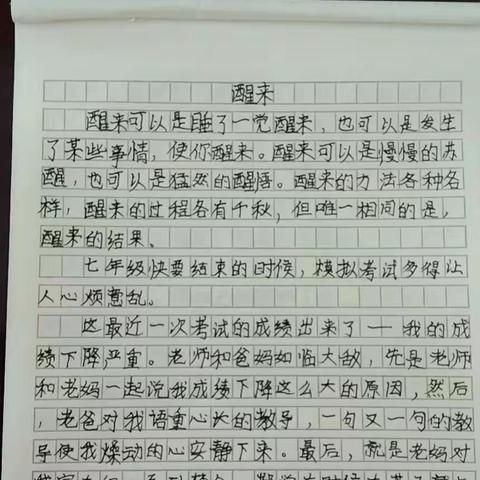 醒来
醒来可以是睡了一觉醒来，也可以是发生
了某些事情，使你醒来。醒来可以是慢慢的苏
醒，也可以是猛然的醒悟。醒来的方法各种各
样，醒来的过程各有千秋，但唯一相同的是，
醒来的结果。
七年级快要结束的时候，模拟考试多得让
人心烦意乱。
这最近一次考试的成绩出来了——我的成
绩下降严重。老师和爸妈如临大敌，先是老师
和老妈一起说我成绩下降这么大的原因，然后
，老爸对我语重心长的教导，一句又一句的教
导使我燥动的心安静下来。最后，就是老妈对